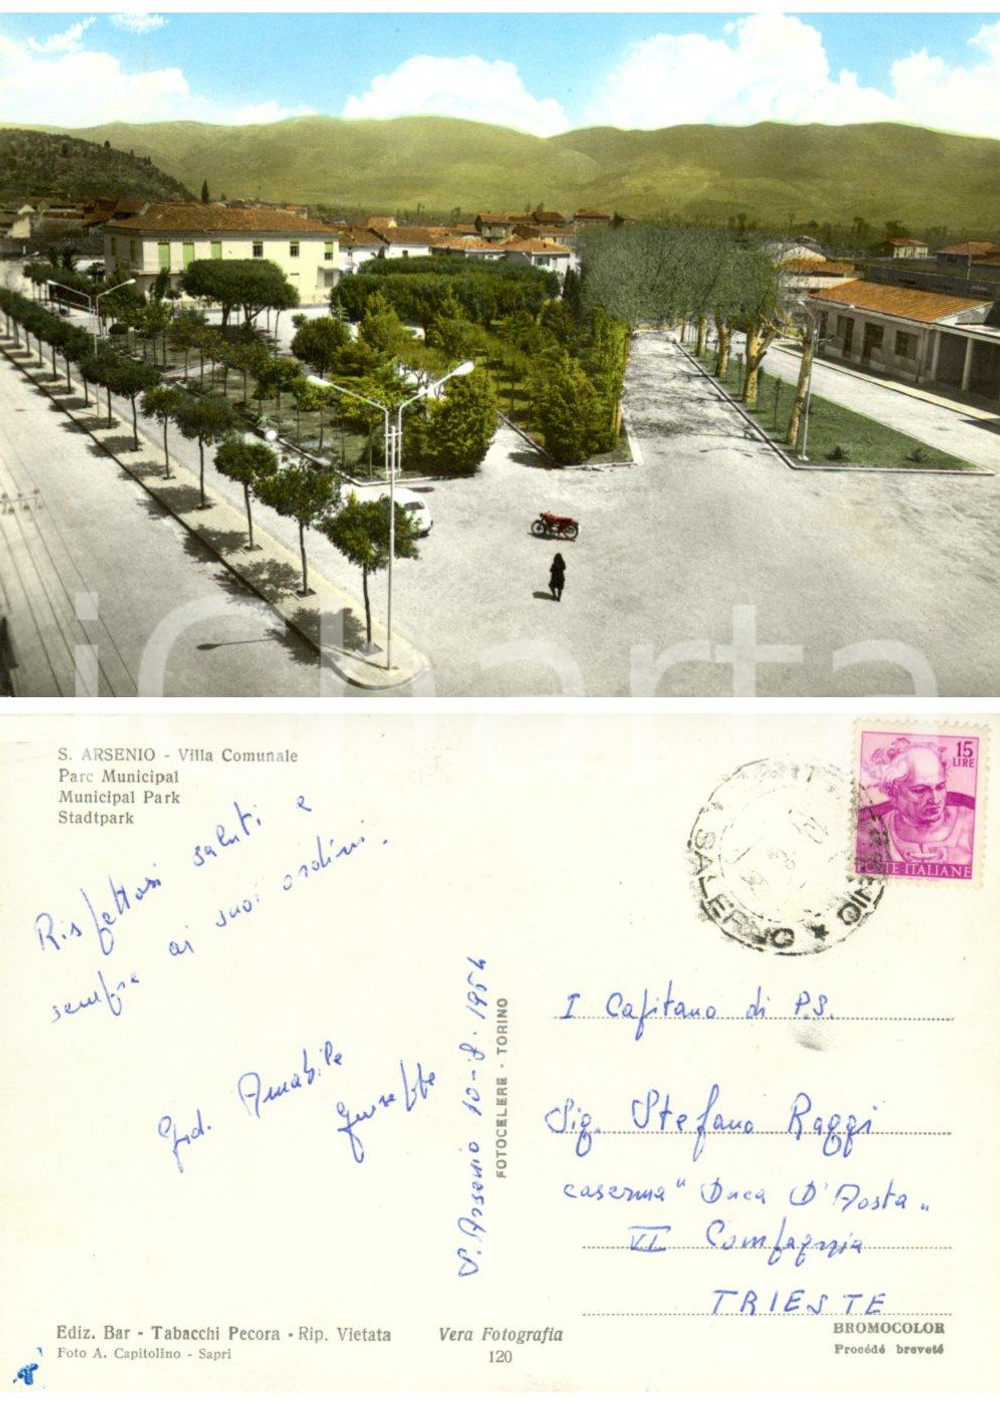 iCharta
S. ARSENIO - Villa Comunale
Parc Municipal
Municipal Park
Stadtpark
15
LIRE
POSTE ITALIANE
SALERNO
Rispettosi saluti e
sempre ai suoi ordini.
Grd. Amabile
Giuseppe
S. Arsenio 10-8-1964
FOTOCELERE - TORINO
I Capitano di P.S.
Sig. Stefano Raggi
caserma "Duca D'Aosta"
VI Compagnia
TRIESTE
Ediz. Bar - Tabacchi Pecora - Rip. Vietata
Foto A. Capitolino - Sapri
Vera Fotografia
120
BROMOCOLOR
Procédé breveté